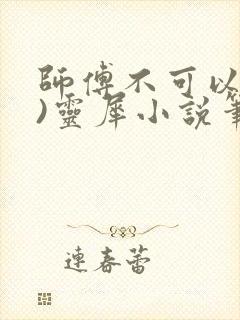 師傅不可以
)靈犀小說筆
連春蕾